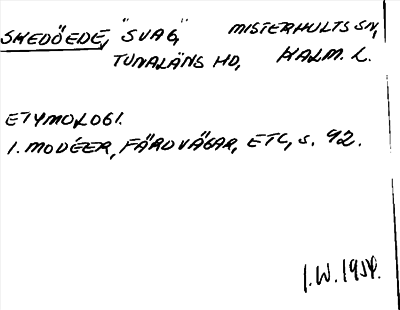 SKEDÖEDE, "SVAG," MISTERHULTS SN,
TUNALÄNS HD, KALM. L.
ETYMOLOGI.
I. MODÉER, FÄRDVÄGAR, ETC, S. 92.
I.W. 1954.